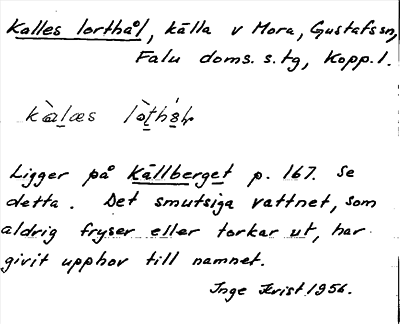 Kalles lorthål, källa v Mora, Gustafssn,
Falu doms. s. tg, Kopp. l.
Ligger på Källberget p. 167. Se
detta. Det smutsiga vattnet, som
aldrig fryser eller torkar ut, har
givit upphov till namnet.
Inge Kvist 1956.